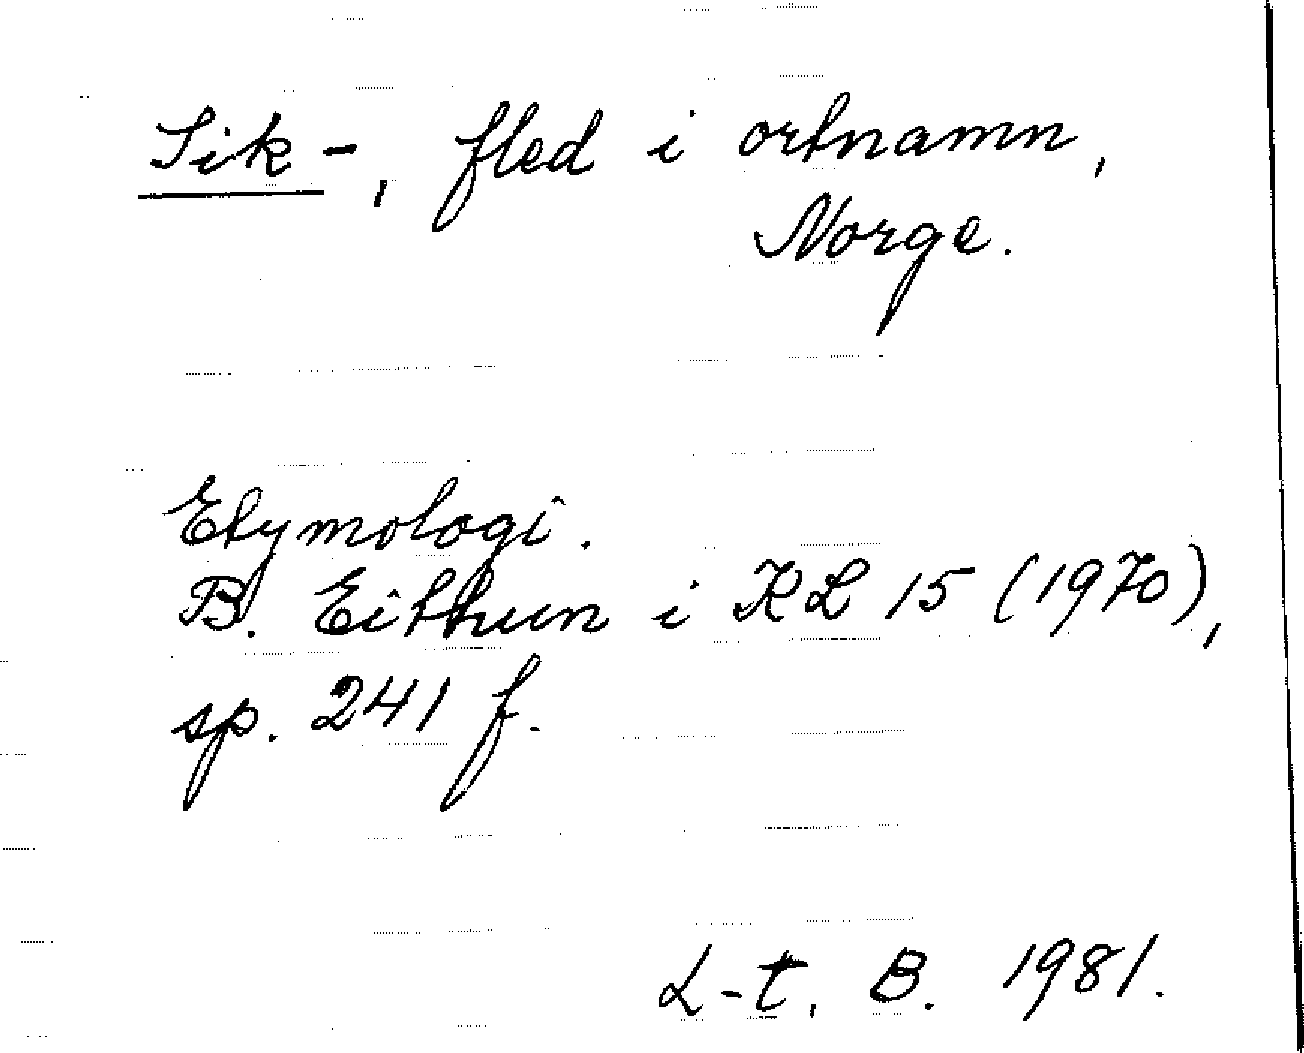 Sik-, fled i ortnamn,
Norge.
Etymologi.
B. Eithun i KL 15 (1970),
sp. 241 f.
L-t, B. 1981.